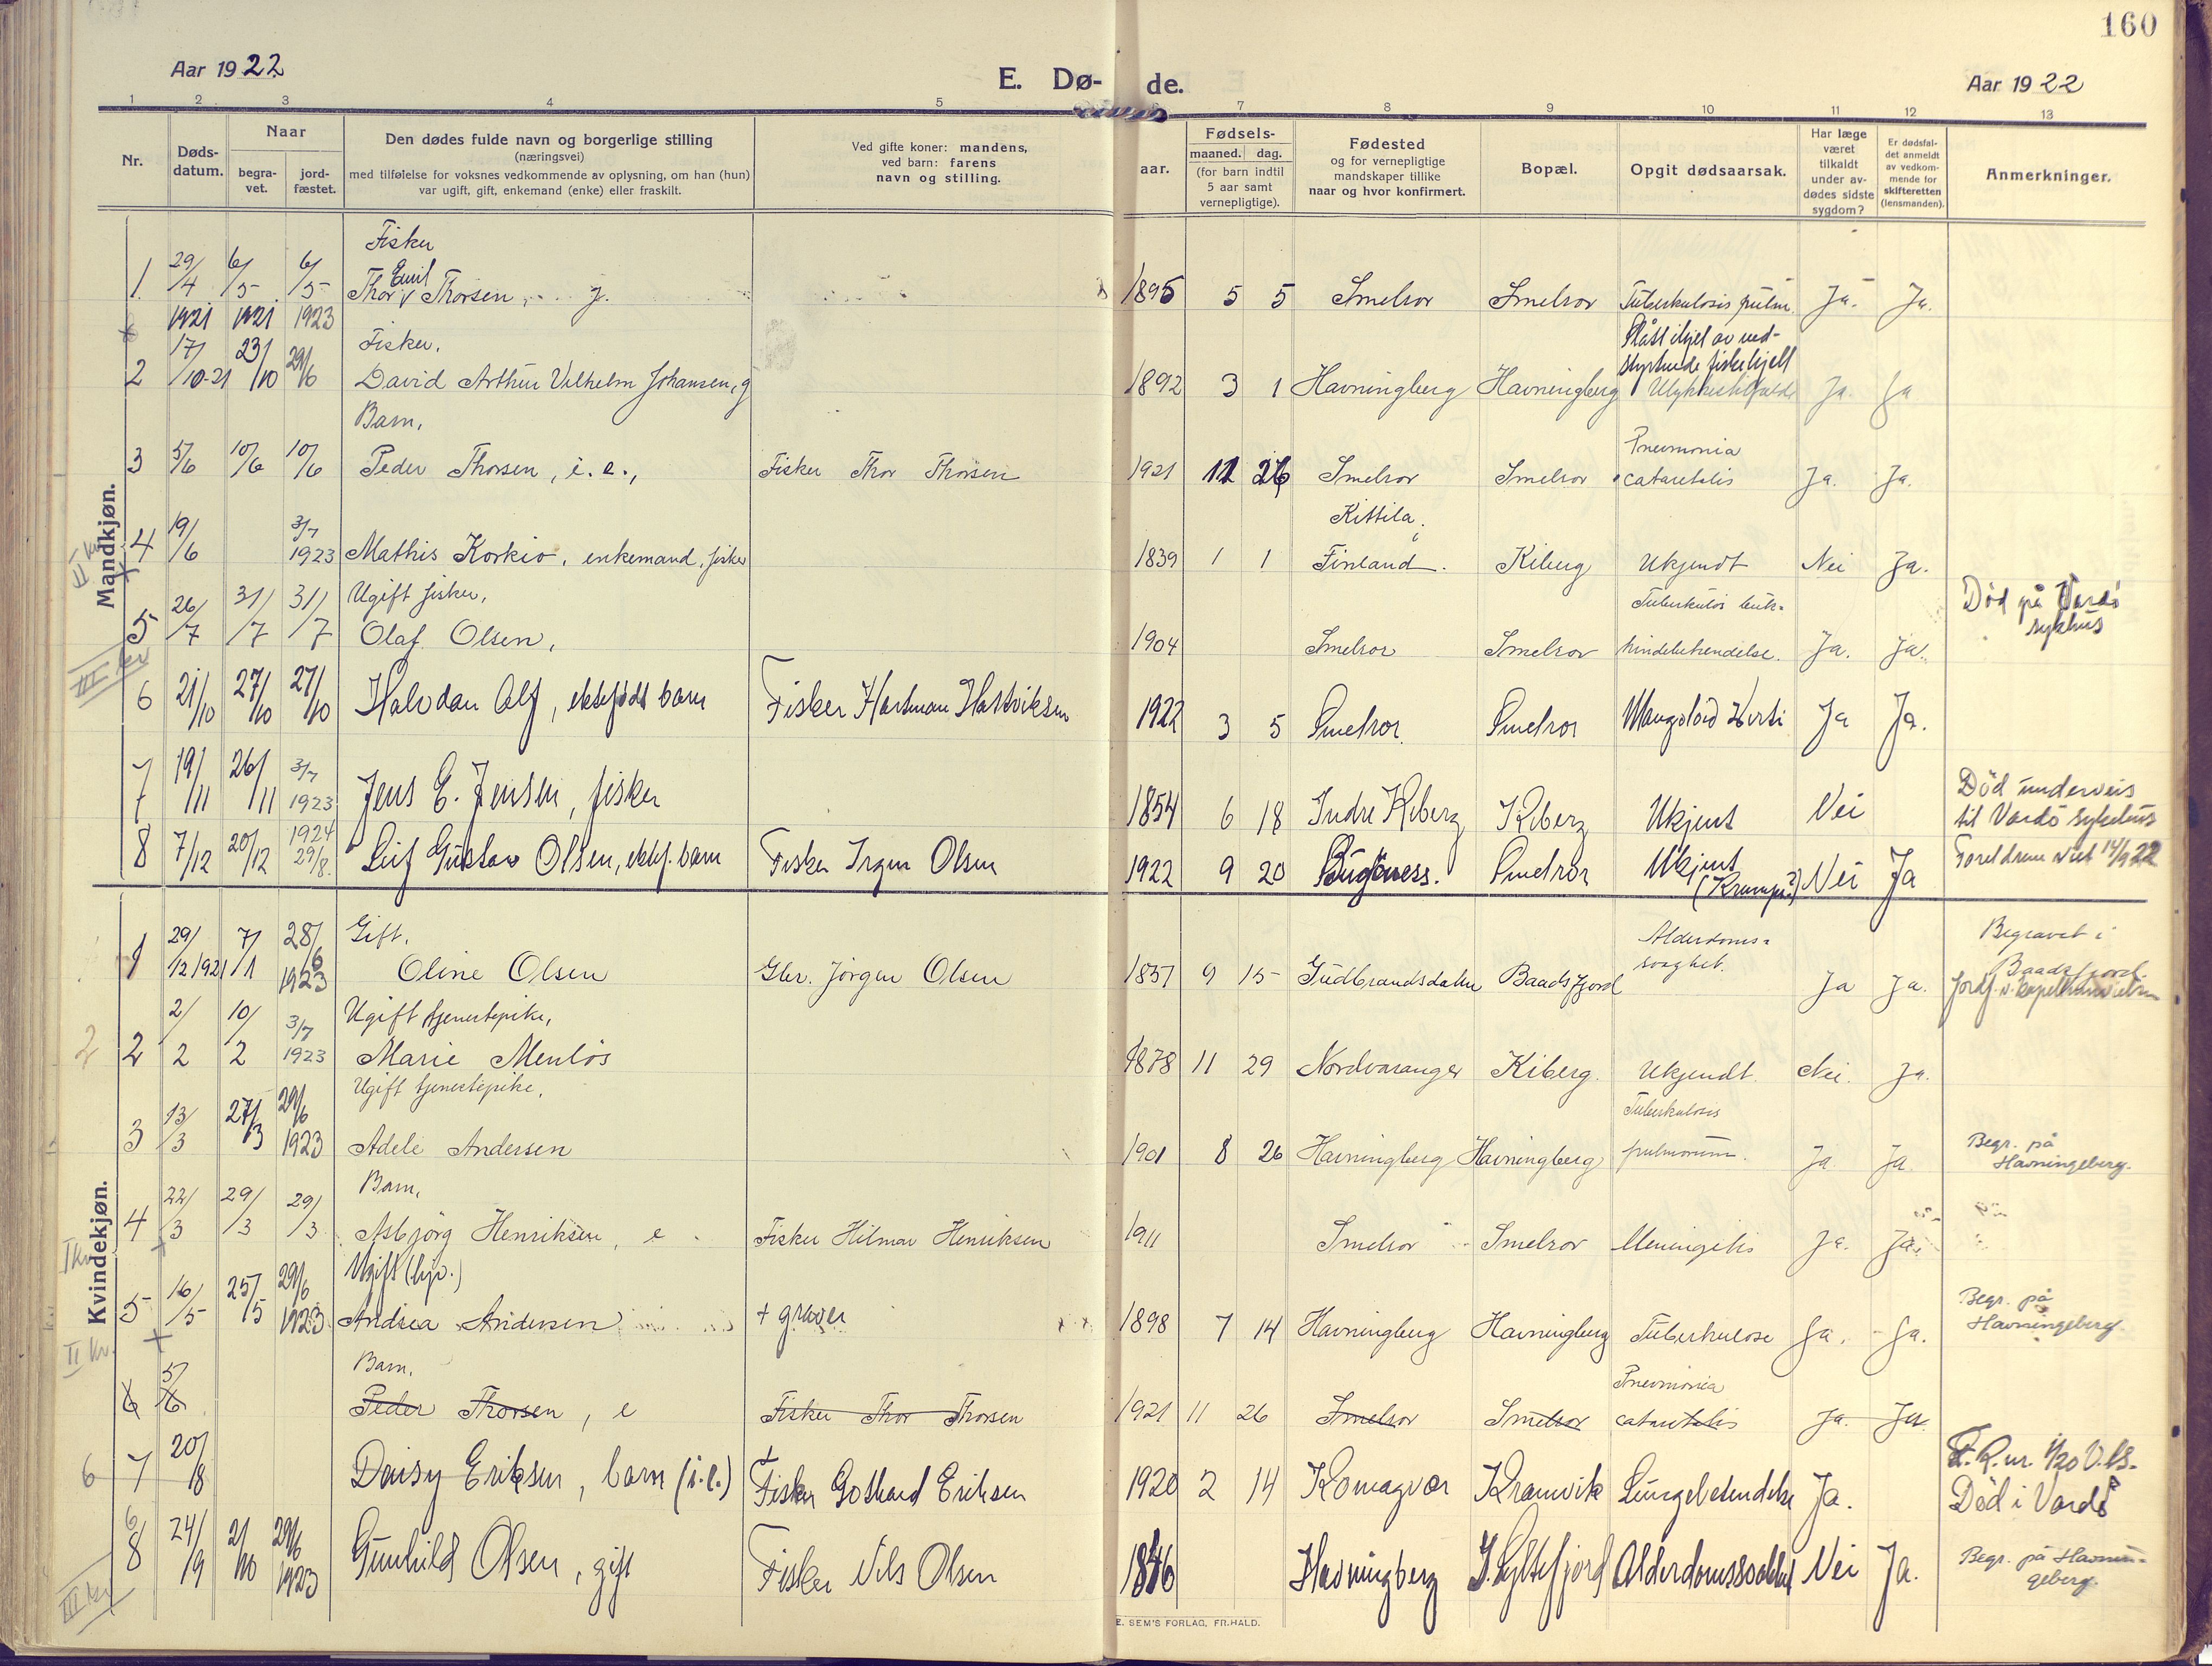 160
Aar 1922
E. Dø-
de.
Aar 1922
1 2 3 4 5 6 7 8 9 10 11 12 13
Nr.
Døds-
datum.
Naar
begra-
vet.
jord-
fæstet.
Den dødes fulde navn og borgerlige stilling
(næringsvei)
med tilføielse for voksnes vedkommende av oplysning, om han (hun)
var ugift, gift, enkemand (enke) eller fraskilt.
Ved gifte koner: mandens,
ved barn: farens
navn og stilling.
aar.
Fødsels-
maaned. dag.
(for barn indtil
5 aar samt
vernepligtige).
Fødested
og for vernepligtige
mandskaper tillike
naar og hvor konfirmert.
Bopæl.
Opgit dødsaarsak.
Har læge
været
tilkaldt
under av-
dødes sidste
sygdom?
Er dødsfal-
det anmeldt
av vedkom-
mende for
skifteretten
(lensmanden).
Anmerkninger.
Mandkjøn.
Fisker
Emil
1 29/4 6/5 6/5 Thor Thorsen, g. 1895 5 5 Smelror Smelror Tuberkulosis pulm. Ja. Ja.
1921 1921 1923
Fisker. Slått ihjel av ned-
styrtende fiskehjell
2 17/10-21 23/10 29/6 David Arthur Vilhelm Johansen, g 1892 3 1 Havningberg Havningberg Ulykkestilfælde Ja. Ja
Barn, Pneumonia
3 5/6 10/6 10/6 Peder Thorsen, i. e., Fisker Thor Thorsen 1921 11 26 Smelror Smelror cataretalis Ja. Ja.
3/7 Kittila,
4 19/6 1923 Mathis Korkio, enkemand, fisker 1839 1 1 Finland. Kiberg Ukjendt Nei Ja.
Ugift fisker, Tuberkuløs buk-
5 26/7 31/7 31/7 Olaf Olsen, 1904 Smelror Smelror hindebetendelse. Ja. Ja. Død på Vardø
sykhus
III kv
6 21/10 27/10 27/10 Halvdan Alf, ektefødt barn Fisker Hartman Hartviksen 1922 3 5 Smelror. Smelror Ja Ja.
7 19/11 26/11 3/7 1923 Jens E. Jensen, fisker 1854 6 18 Indre Kiberg Kiberg Ukjent Nei Død underveis
til Vardø sykehus
8 7/12 20/12 1924 29/8. Leif Gustav Olsen, ektef. barn Fisker Olsen 1922 9 20 Bugöness. Smelror Ukjent (Krampe?) Nei Ja Foreldrene viet 14/9 22
Kvindekjøn.
Gift. Alderdoms-
svaghet. Begravet i
Baadsfjord.
1 29/12 1921 7/1 28/6 1923 Oline Olsen Gbr. Jørgen Olsen 1837 9 15 Gudbrandsdalen Baadsfjord Ja Ja.
Ugift tjenestepike,
2 2 2/2 10/2 3/7 1923 Marie Menløs 1878 11 29 Nordvaranger Kiberg. Ukjendt Nei. Ja.
Ugift tjenestepike, Tuberkulosis
3 13/3 27/3 29/6 1923 Adele Andersen 1901 8 26 Havningberg Havningberg pulmorum. Ja Ja Begr. på
Havningeberg.
Barn,
4 22/3 29/3 29/3 Asbjørg Henriksen, e Fisker Hilmar Henriksen 1911 Smelror Smelror Meningitis Ja. Ja.
I kv.
Ugift (hjv.)
5 16/5 25/5 29/6 1923 Andrea Andersen + graver 1898 7 14 Havningberg Havningberg Tuberkulose Ja. Ja. Begr. på
Havningeberg.
II kv.
Barn, Pneumonia
6 5/6 Peder Thorsen, e Fisker Thor Thorsen 1921 11 26 Smelror Smelror cataretalis Ja. Ja.
6 7 20/8 Daisy Eriksen, barn (i.e.) Fisker Gothard Eriksen 1920 2 14 Komagvær Kramvik Lungebetendelse Ja. F. R. nr. 1/20 V. ls.
Død i Vardø
6
8 24/9 2/10 29/6 1923 Gunhild Olsen, gift Fisker Nils Olsen 1846 Havningberg I. Syltefjord Alderdomssvakhet Nei Ja. Begr. på Havnin-
geberg.
III kv
E. SEM'S FORLAG, FR.HALD.